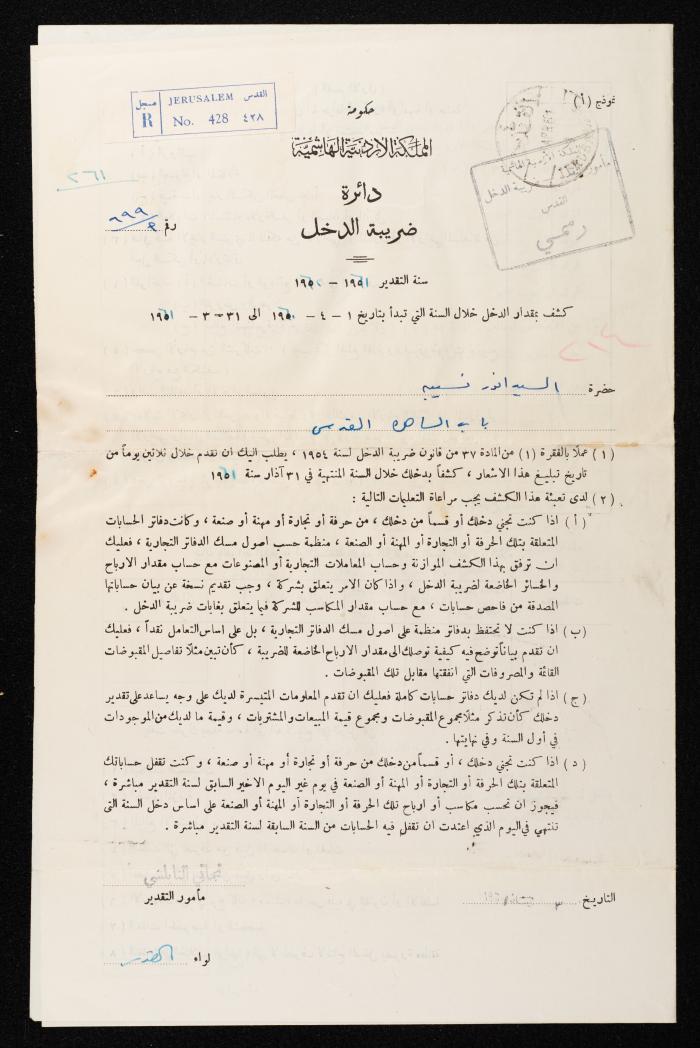 نموذج (أ)
مسجل
R
JERUSALEM القدس
No. 428 ٤٢٨
حكومة
المملكة الاردنية الهاشمية
دائرة
ضريبة الدخل
مأمور ضريبة الدخل
القدس
رسمي
٢٦١
رقم ٦٩٩/٩
سنة التقدير ١٩٦١ – ١٩٦٠
كشف بمقدار الدخل خلال السنة التي تبدأ بتاريخ ١ – ٤ – ١٩٦٠ الى ٣١ – ٣ – ١٩٦١
حضرة السيد انور نسيبه
باب الساهره القدس
(١) عملاً بالفقرة (١) من المادة ٣٧ من قانون ضريبة الدخل لسنة ١٩٥٤ ، يطلب اليك ان تقدم خلال ثلاثين يوماً من
تاريخ تبليغ هذا الاشعار ، كشفاً بدخلك خلال السنة المنتهية في ٣١ آذار سنة ١٩٦١
(٢) لدى تعبئة هذا الكشف يجب مراعاة التعليمات التالية :
(أ) اذا كنت تجني دخلك أو قسماً من دخلك ، من حرفة أو تجارة أو مهنة أو صنعة ، وكانت دفاتر الحسابات
المتعلقة بتلك الحرفة أو التجارة أو المهنة أو الصنعة ، منظمة حسب اصول مسك الدفاتر التجارية ، فعليك
ان ترفق بهذا الكشف الموازنة وحساب المعاملات التجارية أو المصنوعات مع حساب مقدار الارباح
والخسائر الخاضعة لضريبة الدخل ، واذا كان الامر يتعلق بشركة ، وجب تقديم نسخة عن بيان حساباتها
المصدقة من فاحص حسابات ، مع حساب مقدار المكاسب للشركة فيما يتعلق بغايات ضريبة الدخل .
(ب) اذا كنت لا تحتفظ بدفاتر منظمة على اصول مسك الدفاتر التجارية ، بل على اساس التعامل نقداً ، فعليك
ان تقدم بياناً توضح فيه كيفية توصلك الى مقدار الارباح الخاضعة للضريبة ، كأن تبين مثلاً تفاصيل المقبوضات
القائمة والمصروفات التي انفقتها مقابل تلك المقبوضات .
(ج) اذا لم تكن لديك دفاتر حسابات كاملة فعليك ان تقدم المعلومات المتيسرة لديك على وجه يساعد على تقدير
دخلك كأن تذكر مثلاً مجموع المقبوضات ومجموع قيمة المبيعات والمشتريات ، وقيمة ما لديك من الموجودات
في أول السنة وفي نهايتها .
(د) اذا كنت تجني دخلك ، أو قسماً من دخلك من حرفة أو تجارة أو مهنة أو صنعة ، وكنت تقفل حساباتك
المتعلقة بتلك الحرفة أو التجارة أو المهنة أو الصنعة في يوم غير اليوم الاخير السابق لسنة التقدير مباشرة ،
فيجوز ان تحسب مكاسب أو ارباح تلك الحرفة أو التجارة أو المهنة أو الصنعة على اساس دخل السنة التي
تنتهي في اليوم الذي اعتدت ان تقفل فيه الحسابات من السنة السابقة لسنة التقدير مباشرة .
التاريخ ٣
نجاتي النابلسي
مأمور التقدير
لواء القدس